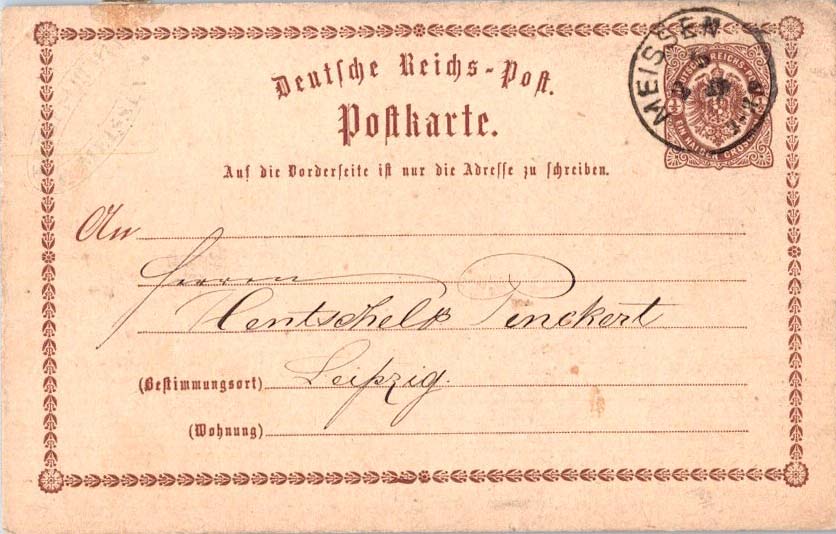 MEISSEN
DEUTSCHE REICHS-POST
EIN HALBER GROSCHEN
Deutsche Reichs-Post.
Postkarte.
Auf die Vorderseite ist nur die Adresse zu schreiben.
An
Herren
Hentschel & Penckert
(Bestimmungsort) Leipzig.
(Wohnung)